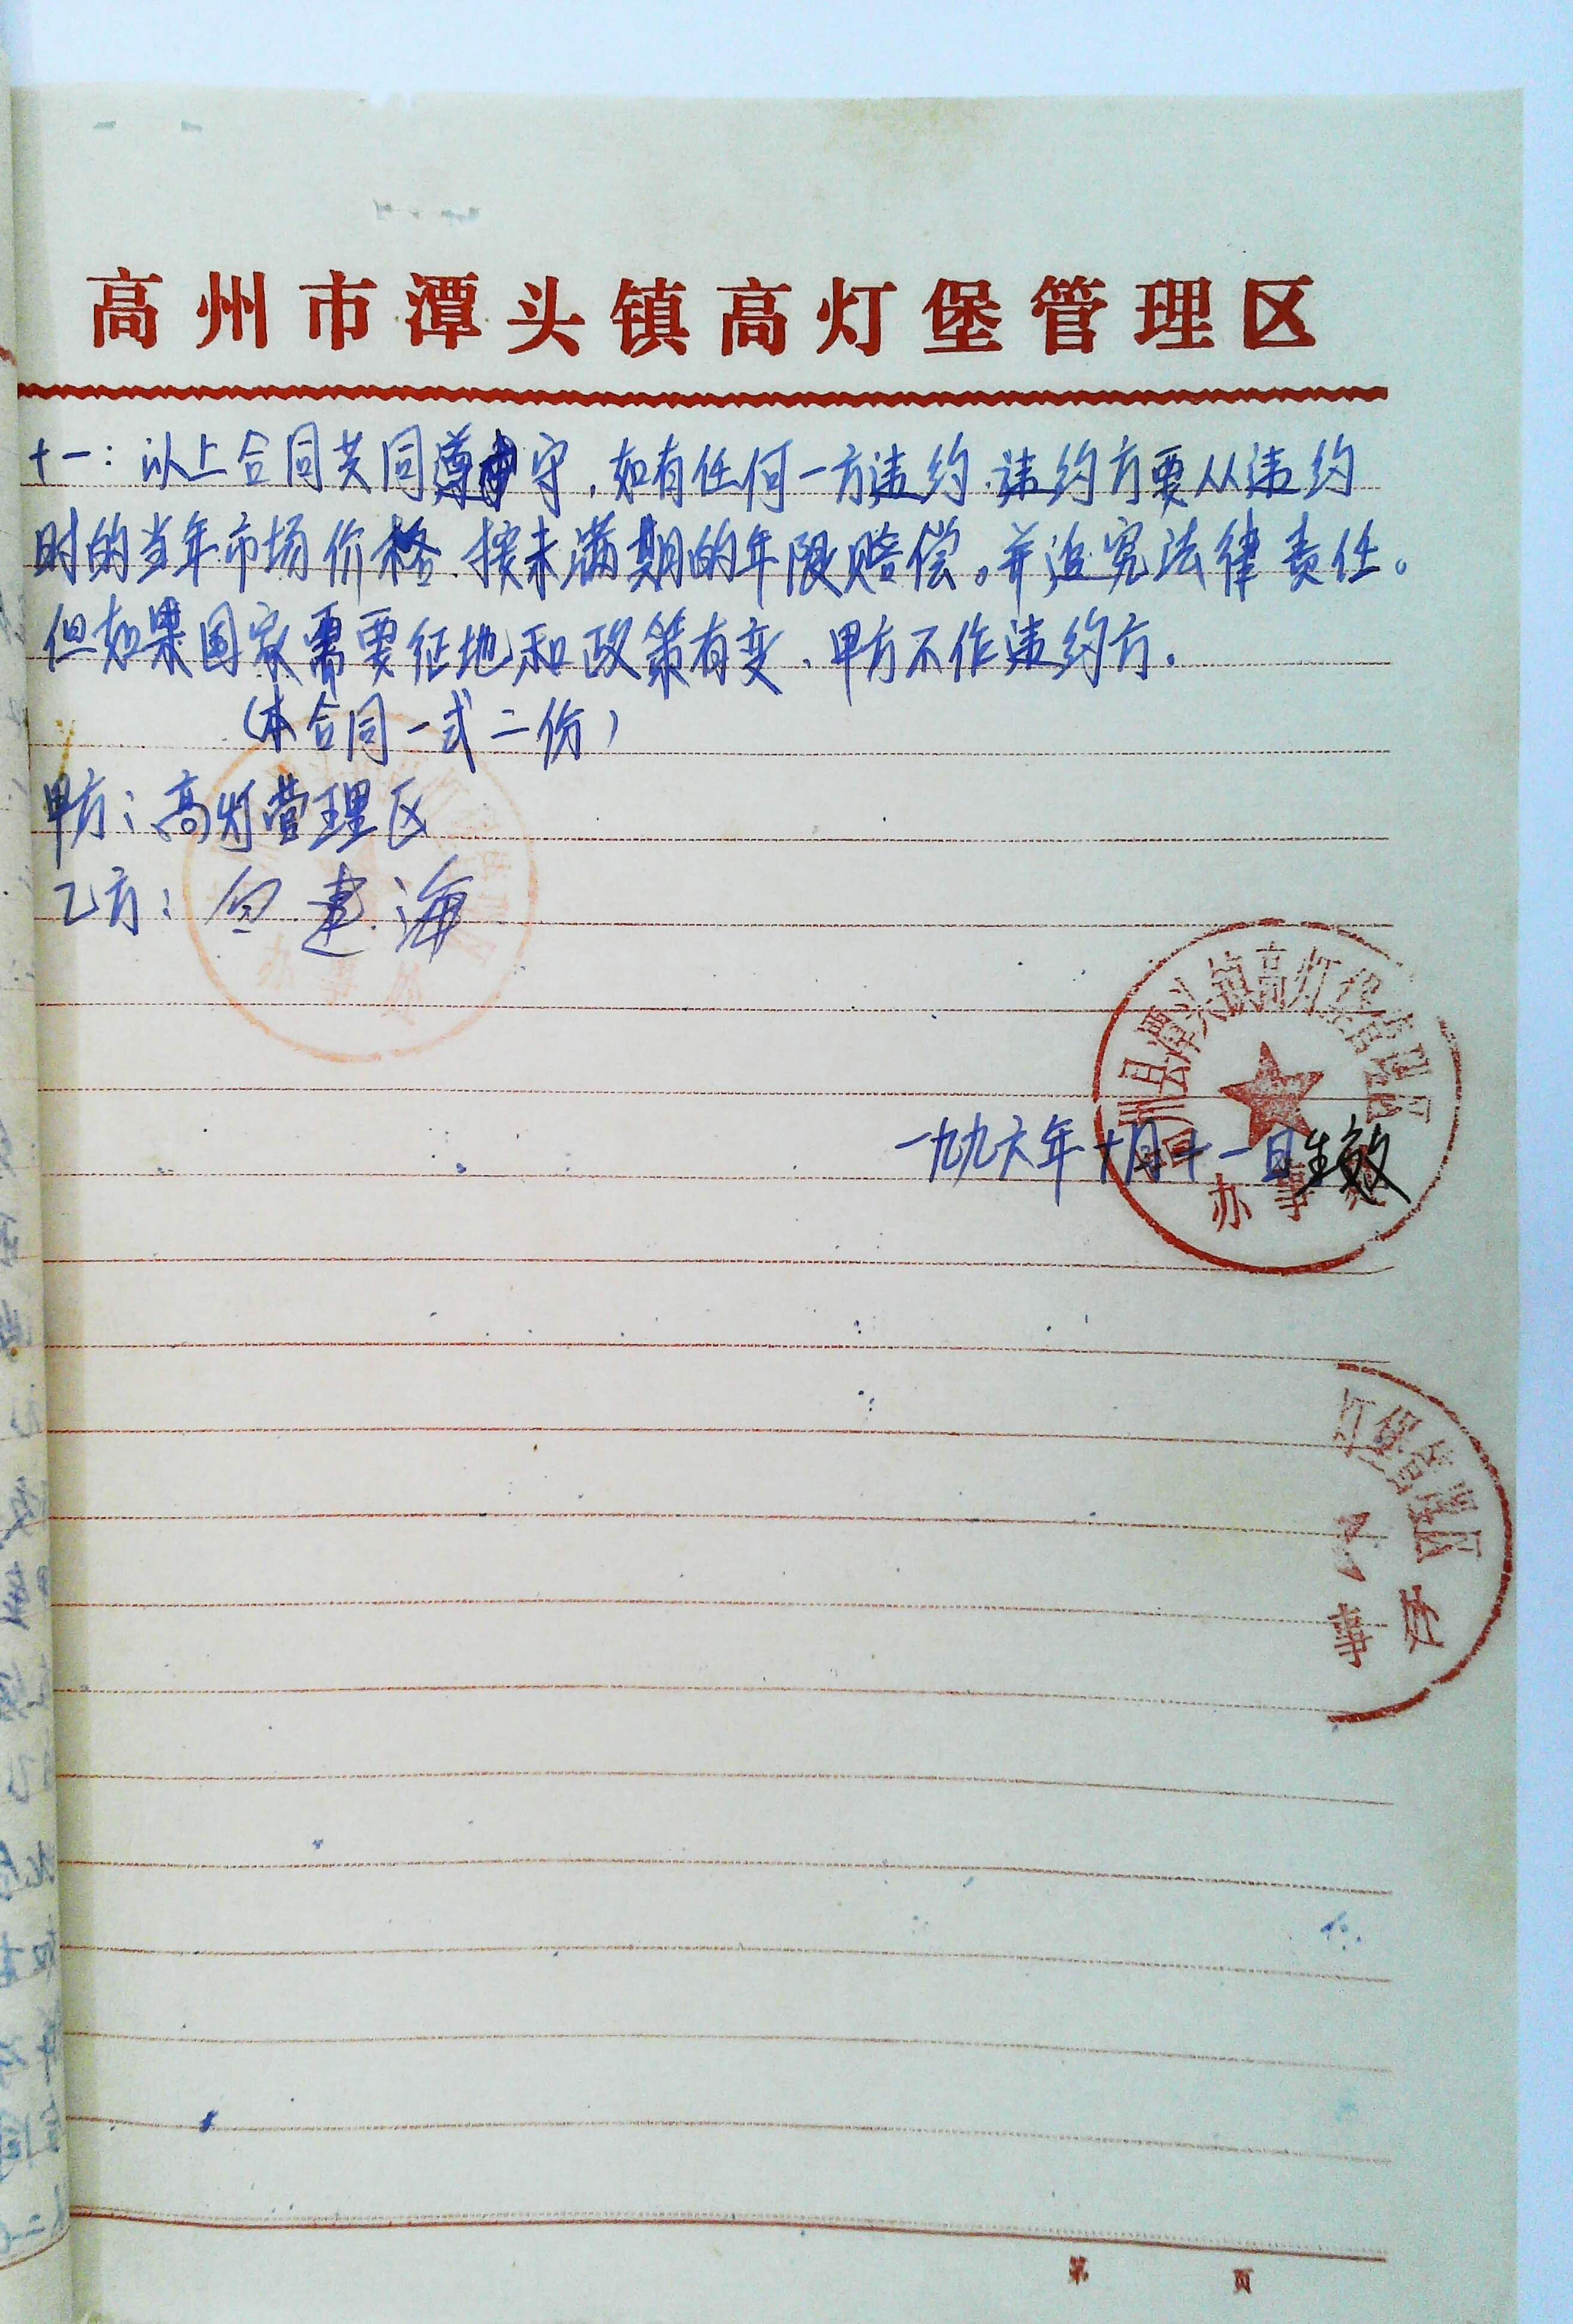 高州市潭头镇高灯堡管理区
十一：以上合同共同遵守，如有任何一方违约、违约方要从违约
时的当年市场价格、按未满期的年限赔偿。并追究法律责任。
但如果国家需要征地和政策有变、甲方不作违约方.
（本合同一式二份）
甲方：高灯管理区
乙方：白建海
州县潭头镇高灯堡管理区
一九九六年十月十一日生效
办事处
灯堡管理区
事处
第 页